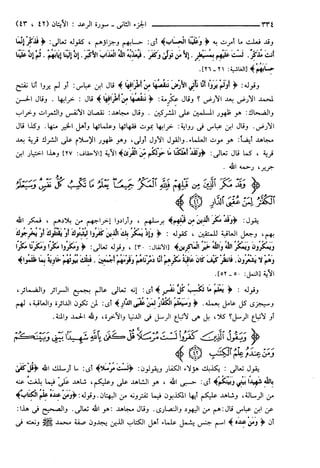 ٣٣٤ الجزء الثانى ـ سورة الرعد : الآيتان (٤٢ ، ٤٣)
وقد فعلت ما أمرت به ﴿ وَعَلَيْنَا الْحِسَابُ﴾ أى : حسابهم وجزاؤهم ، كقوله تعالى : ﴿ فَذَكِّرْ إِنَّمَا
أَنتَ مُذَكِّرٌ . لَسْتَ عَلَيْهِم بِمُسَيْطِرٍ . إِلَّا مَن تَوَلَّىٰ وَكَفَرَ . فَيُعَذِّبُهُ اللَّهُ الْعَذَابَ الْأَكْبَرَ . إِنَّ إِلَيْنَا إِيَابَهُمْ . ثُمَّ إِنَّ عَلَيْنَا
حِسَابَهُم ﴾ [الغاشية : ٢١ ـ ٢٦] .
وقوله : ﴿ أَوَلَمْ يَرَوْا أَنَّا نَأْتِي الْأَرْضَ نَنقُصُهَا مِنْ أَطْرَافِهَا ﴾ قال ابن عباس : أو لم يروا أنا نفتح
لمحمد الأرض بعد الأرض ؟ وقال عكرمة : ﴿ نَنقُصُهَا مِنْ أَطْرَافِهَا ﴾ قال : خرابها . وقال الحسن
والضحاك : هو ظهور المسلمين على المشركين . وقال مجاهد : نقصان الأنفس والثمرات وخراب
الأرض . وقال ابن عباس فى رواية : خرابها بموت فقهائها وعلمائها وأهل الخير منها . وكذا قال
مجاهد أيضاً : هو موت العلماء . والقول الأول أولى ، وهو ظهور الإسلام على الشرك قرية بعد
قرية ، كما قال تعالى : ﴿ وَلَقَدْ أَهْلَكْنَا مَا حَوْلَكُم مِّنَ الْقُرَىٰ﴾ الآية [الأحقاف : ٢٧] وهذا اختيار ابن
جرير ، رحمه الله .
﴿ وَقَدْ مَكَرَ الَّذِينَ مِن قَبْلِهِمْ فَلِلَّهِ الْمَكْرُ جَمِيعًا يَعْلَمُ مَا تَكْسِبُ كُلُّ نَفْسٍ وَسَيَعْلَمُ
الْكُفَّارُ لِمَنْ عُقْبَى الدَّارِ ﴾
يقول : ﴿ وَقَدْ مَكَرَ الَّذِينَ مِن قَبْلِهِمْ﴾ برسلهم ، وأرادوا إخراجهم من بلادهم ، فمكر الله
بهم ، وجعل العاقبة للمتقين ، كقوله : ﴿ وَإِذْ يَمْكُرُ بِكَ الَّذِينَ كَفَرُوا لِيُثْبِتُوكَ أَوْ يَقْتُلُوكَ أَوْ يُخْرِجُوكَ
وَيَمْكُرُونَ وَيَمْكُرُ اللَّهُ وَاللَّهُ خَيْرُ الْمَاكِرِينَ﴾ [الأنفال : ٣٠] ، وقوله تعالى : ﴿ وَمَكَرُوا مَكْرًا وَمَكَرْنَا مَكْرًا
وَهُمْ لَا يَشْعُرُونَ . فَانظُرْ كَيْفَ كَانَ عَاقِبَةُ مَكْرِهِمْ أَنَّا دَمَّرْنَاهُمْ وَقَوْمَهُمْ أَجْمَعِينَ . فَتِلْكَ بُيُوتُهُمْ خَاوِيَةً بِمَا ظَلَمُوا﴾
الآية [النمل : ٥٠ ـ ٥٢] .
وقوله : ﴿ يَعْلَمُ مَا تَكْسِبُ كُلُّ نَفْسٍ ﴾ أى : إنه تعالى عالم بجميع السرائر والضمائر ،
وسيجزى كل عامل بعمله . ﴿ وَسَيَعْلَمُ الْكُفَّارُ لِمَنْ عُقْبَى الدَّارِ ﴾ أى : لمن تكون الدائرة والعاقبة ، لهم
أو لأتباع الرسل ؟ كلا ، بل هى لأتباع الرسل فى الدنيا والآخرة ، ولله الحمد والمنة .
﴿ وَيَقُولُ الَّذِينَ كَفَرُوا لَسْتَ مُرْسَلًا قُلْ كَفَىٰ بِاللَّهِ شَهِيدًا بَيْنِي وَبَيْنَكُمْ
وَمَنْ عِندَهُ عِلْمُ الْكِتَابِ ﴾
يقول تعالى : يكذبك هؤلاء الكفار ويقولون : ﴿ لَسْتَ مُرْسَلًا﴾ أى : ما أرسلك الله ﴿ قُلْ كَفَىٰ
بِاللَّهِ شَهِيدًا بَيْنِي وَبَيْنَكُمْ ﴾ أى : حسبى الله ، هو الشاهد على وعليكم ، شاهد علىّ فيما بلغت عنه
من الرسالة ، وشاهد عليكم أيها المكذبون فيما تفترونه من البهتان . وقوله : ﴿ وَمَنْ عِندَهُ عِلْمُ الْكِتَابِ﴾
عن ابن عباس قال : هم من اليهود والنصارى . وقال مجاهد : هو الله تعالى . والصحيح فى هذا :
أن ﴿ وَمَنْ عِندَهُ ﴾ اسم جنس يشمل علماء أهل الكتاب الذين يجدون صفة محمد ﷺ ونعته فى